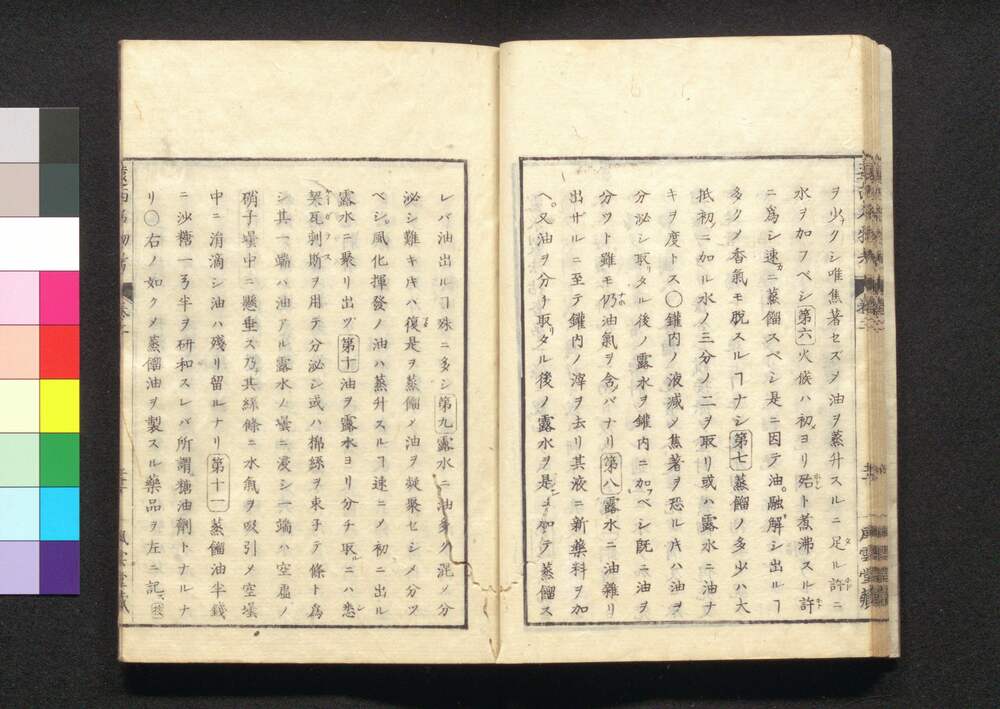 ヲ少クシ唯焦著セズメ油ヲ蒸升スルニ足ル許ニ
水ヲ加フベシ第六火候ハ初ヨリ殆ト煮沸スル許
ニ為シ速ニ蒸餾スベシ是ニ因テ油融解シ出ルヿ
多クノ香氣モ脱スルヿナシ第七蒸餾ノ多少ハ大
抵初ニ加ル水ノ三分ノ二ヲ取リ或ハ露水ニ油ナ
キヲ度トス〇鑵内ノ液減メ焦著ヲ恐ルヽ𪜈ハ油ヲ
分泌シ取リタル後ノ露水ヲ鑵内ニ加フベシ既ニ油ヲ
分ツト雖モ仍油氣ヲ含バナリ第八露水ニ油雜リ
出ザルニ至テ鑵内ノ滓ヲ去リ其液ニ新藥料ヲ加
ヘ又油ヲ分チ取リタル後ノ露水ヲ是ニ加テ蒸餾ス
レバ油出ルヿ殊ニ多シ第九露水ニ油多ク混メ分
泌シ難キ𪜈ハ復是ヲ蒸餾メ油ヲ凝聚セシメ分ツ
ベシ風化揮發ノ油ハ蒸升スルヿ速ニメ初ニ出ル
露水ニ聚リ出ヅ第十油ヲ露水ヨリ分チ取ルニハ悉
契瓦剌斯ヲ用テ分泌シ或ハ棉絲ヲ束子テ條ト爲
シ其一端ハ油アル露水ノ壜ニ浸シ一端ハ空虚ノ
硝子壜中ニ懸垂ス乃其絲條ニ水氣ヲ吸引メ空壜
中ニ涓滴シ油ハ殘リ留ルナリ第十一蒸餾油半錢
ニ沙糖一弓半ヲ研和スレバ所謂糖油劑トナルナ
リ〇右ノ如クメ蒸餾油ヲ製スル藥品ヲ左ニ記ス
風雲堂藏